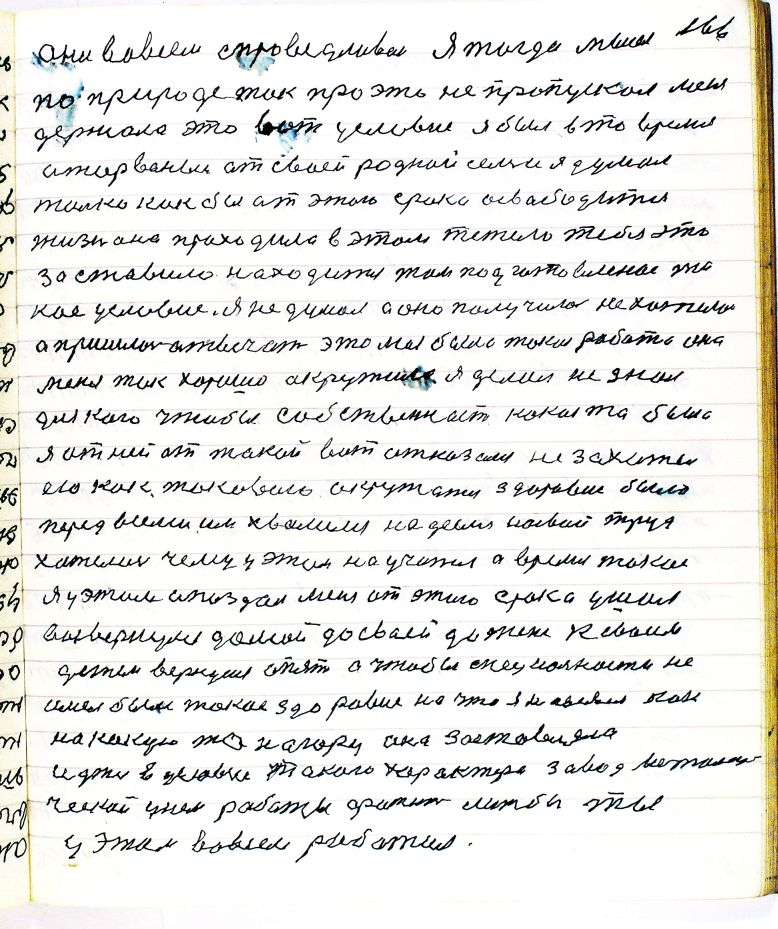 они вовсем справедливаи я тогда мыси 166
по природе так про это не пропускал меня
держала это вот условие я был в то время
оторваным от своей родной семи я думал
толко как бы от этого срока освабодится
жизн она проходила в этом тежело тебя это
заставило находится там подготовленое та
кое условие. я не думал а оно получилос не хотелос
а пришлос отвечат это моя была такая работа она
меня так хорошо окружила я делал не знал
для кого чтобы собственаст какая та была
я от ней от такой вот отказался не захотел
его как таковаго окружатя здоровие было
перед всеми им хвалился надеялся новай труд
хотелос чему у этом научится а время такое
я у этом опоздал меня от этого срока
возвернули домой до своей до жене к своим
детем вернулся опят а чтобы специалности не
имел были такое здоровие на что я надеялся как
на какую то нагору она заставляла
идти в условие такого характера завод металли
ческой у нем работы хватит лишбы ты
у этом вовсем работал.